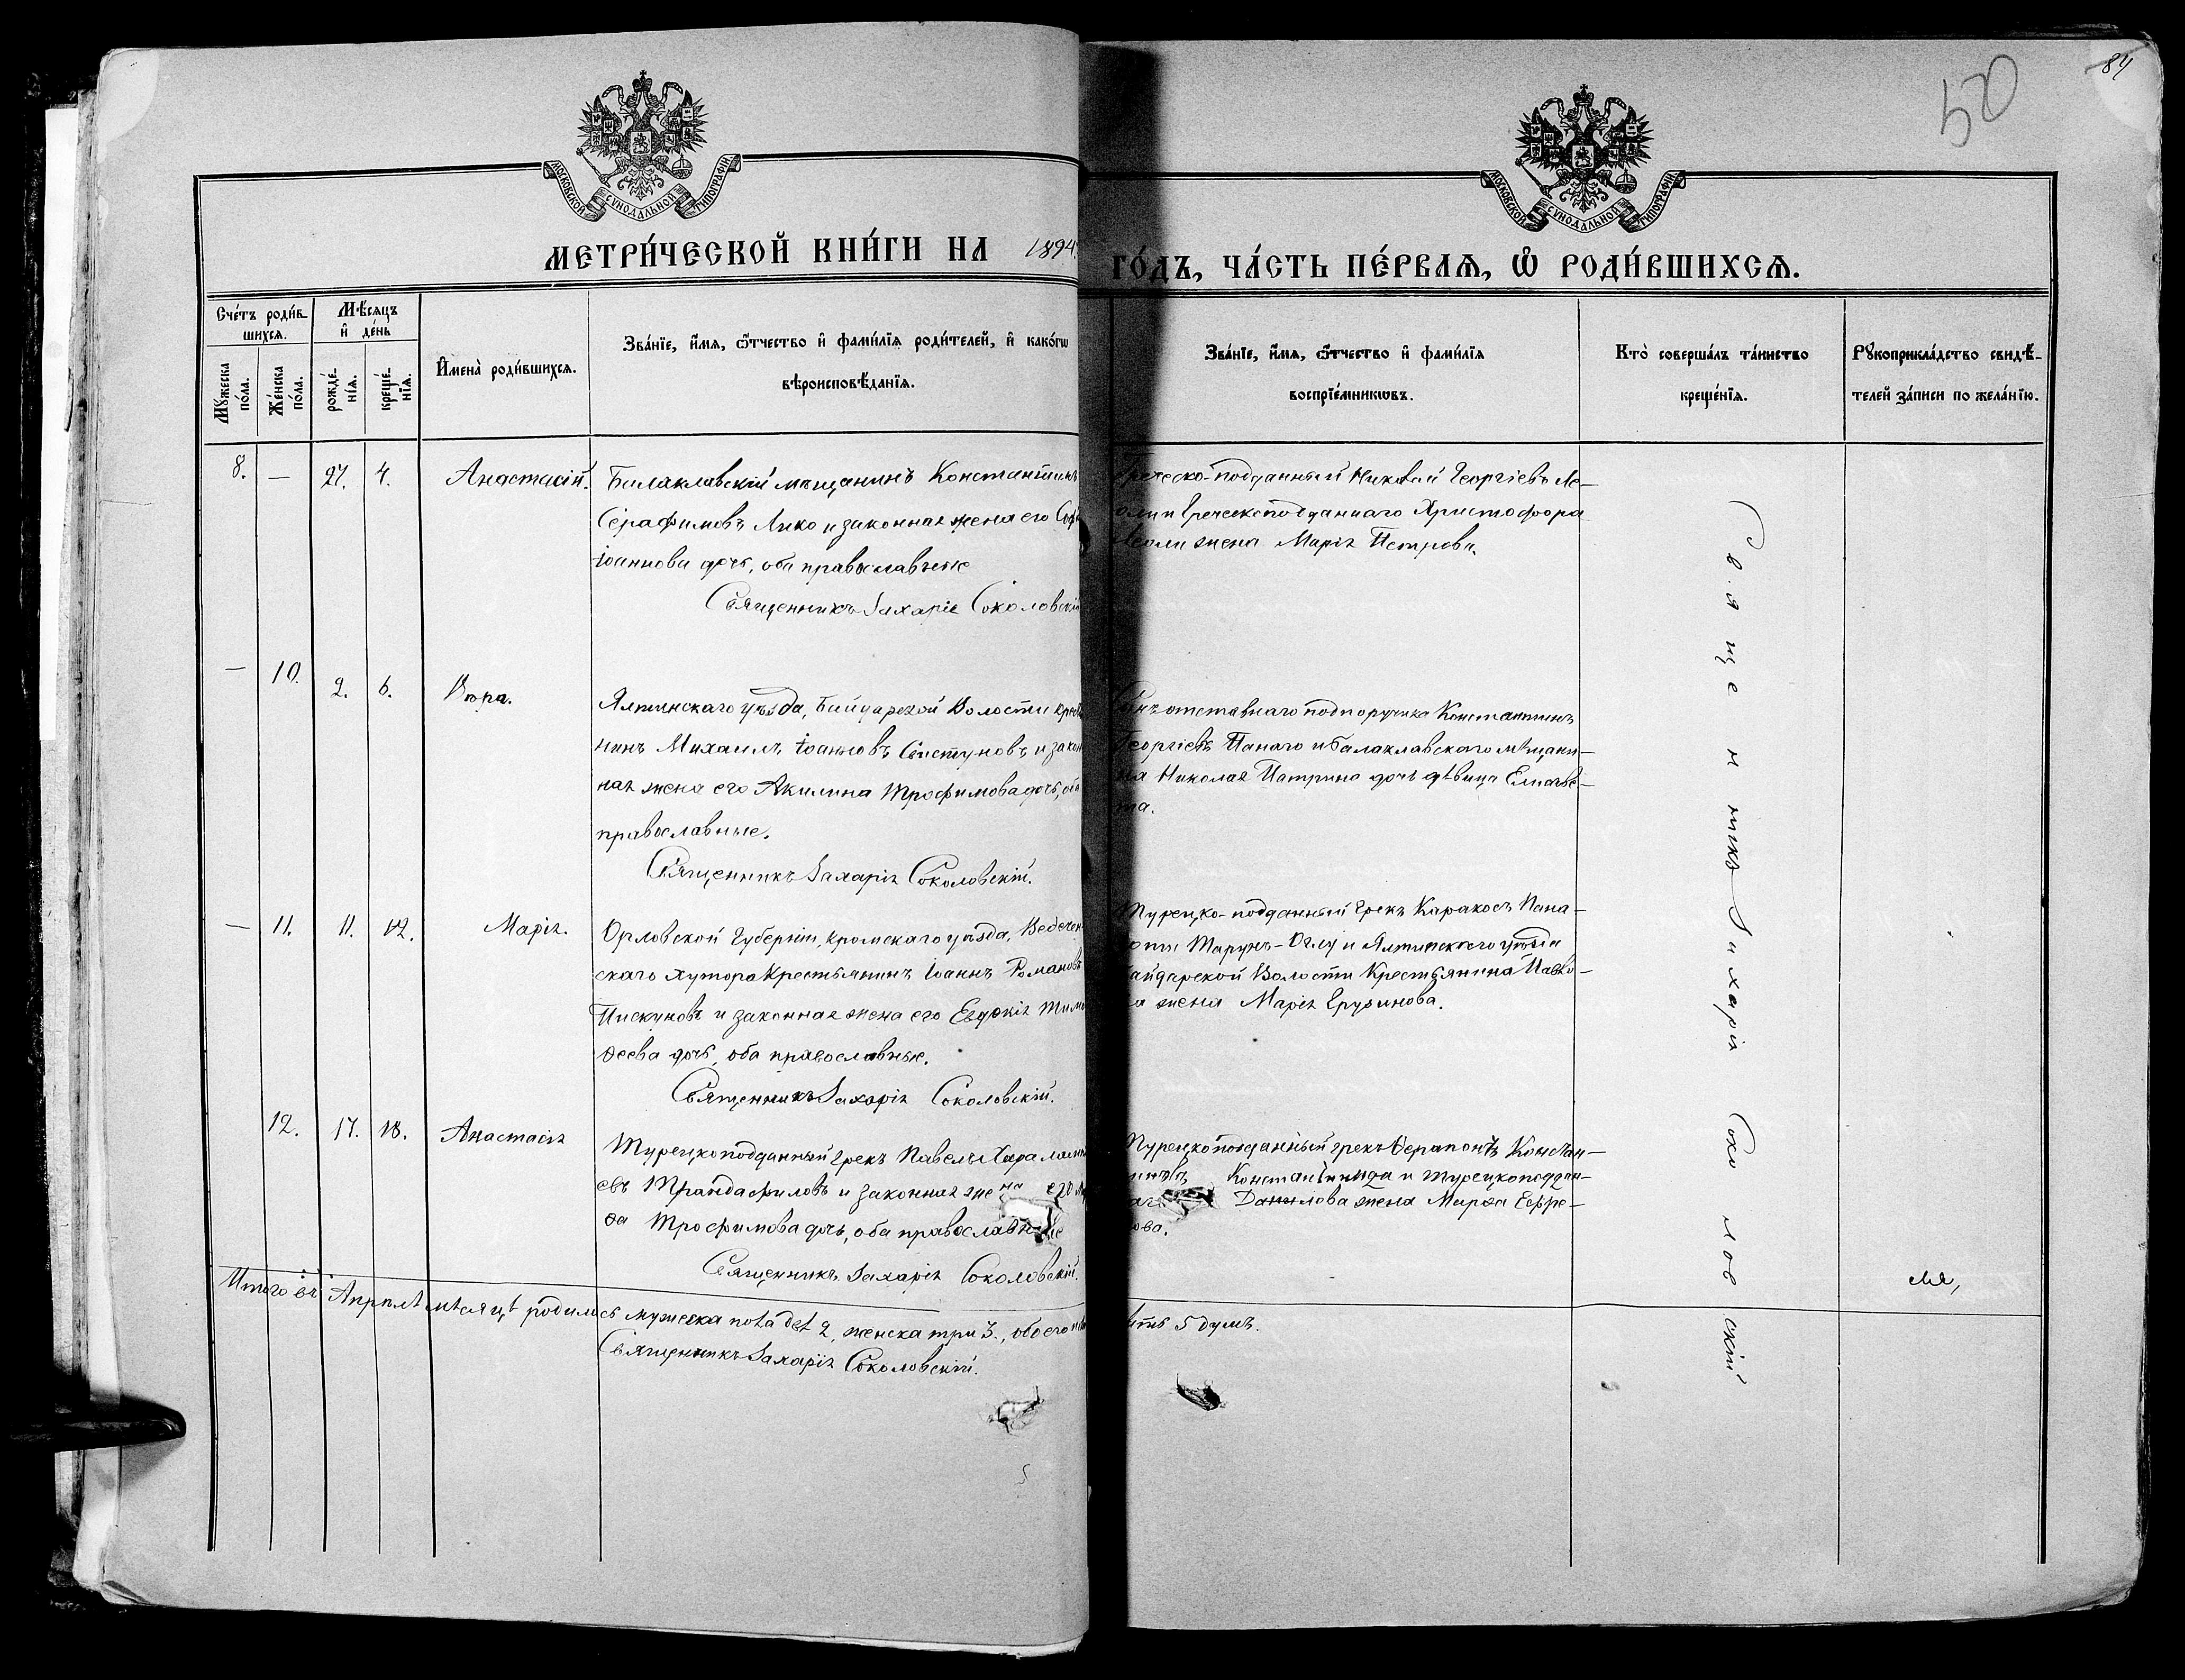 50
84
МОСКОВСКОЙ СѴНОДАЛЬНОЙ ТИПОГРАФІИ
МОСКОВСКОЙ СѴНОДАЛЬНОЙ ТИПОГРАФІИ
МЕТРИ́ЧЕСКОЙ КНИ́ГИ НА 1894 ГО́ДЪ, ЧА́СТЬ ПЕ́РВАѦ, Ѽ РОДИ́ВШИХСѦ.
Сче́тъ роди́в-
шихсѧ.
Мꙋ́жеска по́ла.
Же́нска по́ла.
Мѣ́сѧцъ и҆ де́нь
рожде́-нїѧ.
креще́-нїѧ.
И҆мена̀ роди́вшихсѧ.
Зва́нїе, и҆́мѧ, ѻ҆́тчество и҆ фами́лїѧ роди́телей, и҆ како́гѡ
вѣроисповѣ́данїѧ.
Зва́нїе, и҆́мѧ, ѻ҆́тчество и҆ фами́лїѧ
воспрїе́мникѡвъ.
Кто̀ соверша́лъ та́инство
креще́нїѧ.
Рꙋкоприкла́дство свидѣ́-
телей за́писи по жела́нїю.
8. — 27. 4. Анастасій.
Балаклавскій мѣщанинъ Константинъ
Серафимовъ Лико и законная жена его
Іоаннова дочь, оба православные
Священникъ Захарія Соколовскій
Греческо-подданный Николай Георгіевъ
и Греческоподданнаго Христофора
жена Марія Петрова.
— 10. 2. 6. Вѣра.
Ялтинскаго уѣзда, Байдарской Волости
Михаилъ Іоанновъ Свистуновъ и
ная жена его Акилина Трофимова дочь,
православные.
Священникъ Захарія Соколовскій.
отставнаго подпоручика Константинъ
Георгіевъ Панаго и балаклавскаго мѣщани-
на Николая Патрина дочь дѣвица Елисаве-
та.
— 11. 11. 12. Марія.
Орловской Губерніи, Кромскаго уѣзда,
скаго хутора Крестьянинъ Іоаннъ Романовъ
Пискуновъ и законная жена его Евдокія
ѳеева дочь, оба православные.
Священникъ Захарія Соколовскій.
Турецко-подданный Грекъ Каракосъ Пана-
Оглу и Ялтинскаго уѣзда
Байдарской Волости Крестьянина
жена Марія
12. 17. 18. Анастасія
Турецкоподданный грекъ Павелъ
евъ Трандафиловъ и законная жена его
Трофимова дочь, оба православные
Священникъ Захарія Соколовскій.
Турецкоподданный грекъ Ѳерапонтъ Констан-
тиновъ Константиниди и турецкоподдан-
Данилова жена
Священникъ Захарія Соколовскій
Итого въ Апрѣлѣ мѣсяцѣ родилось мужеска пола два 2, женска три 3., обоего пять 5 душъ.
Священникъ Захарія Соколовскій.